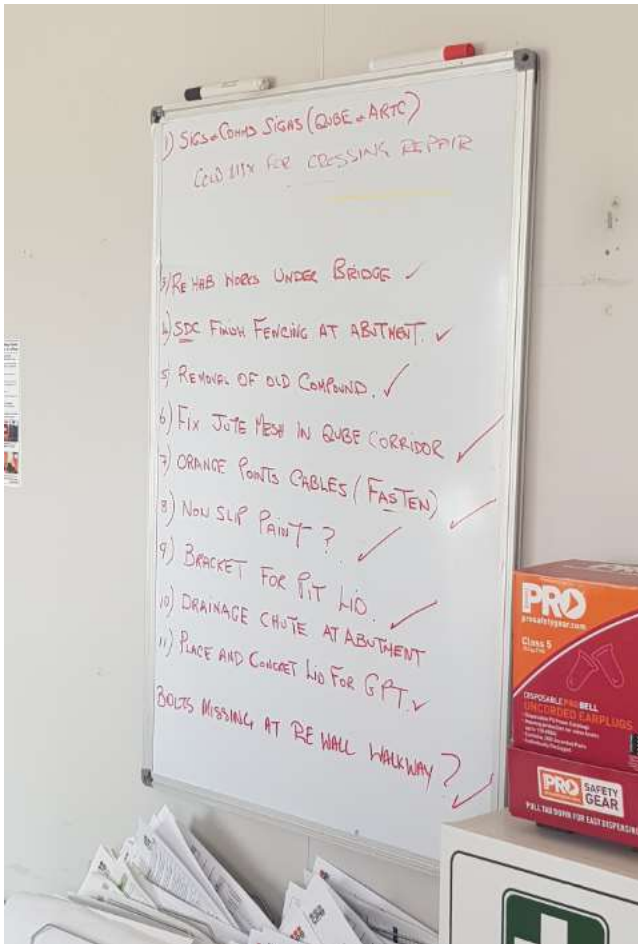 1) SIGS & COMMS SIGNS (QUBE & ARTC)
COLD MIX FOR CROSSING REPAIR
3) REHAB WORKS UNDER BRIDGE ✓
4) SDC FINISH FENCING AT ABUTMENT. ✓
5) REMOVAL OF OLD COMPOUND. ✓
6) FIX JUTE MESH IN QUBE CORRIDOR ✓
7) ORANGE POINTS CABLES (FASTEN) ✓
8) NON SLIP PAINT? ✓
9) BRACKET FOR PIT LID. ✓
10) DRAINAGE CHUTE AT ABUTMENT
11) PLACE AND CONCRET LID FOR GPT. ✓
BOLTS MISSING AT RE WALL WALKWAY? ✓
PRO
prosafetygear.com
Class 5
DISPOSABLE PROBELL
UNCORDED EARPLUGS
PRO SAFETY GEAR
PULL TAB DOWN FOR EAST DISPENSING